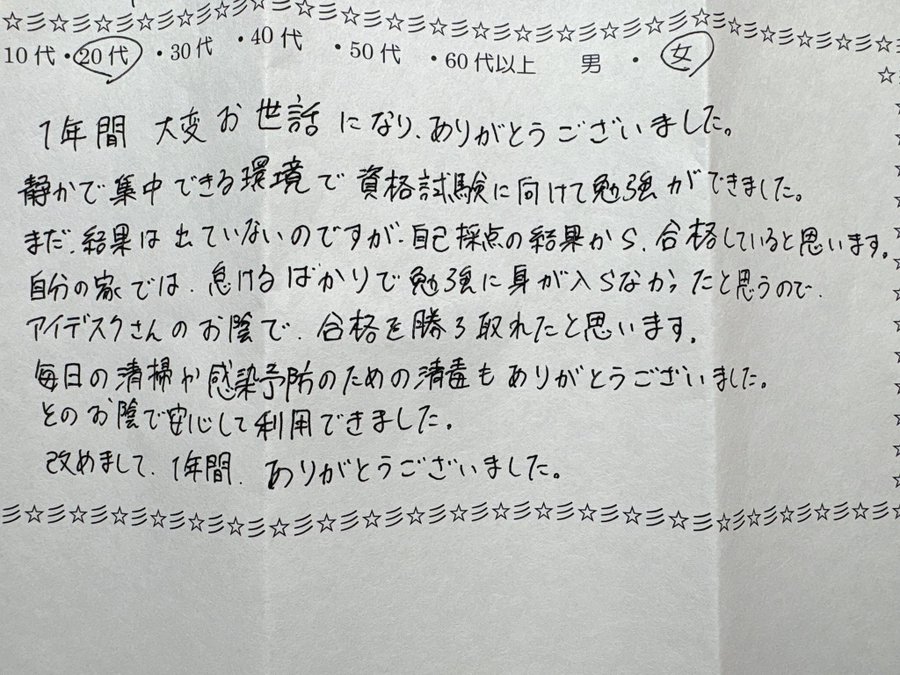 10代・20代・30代・40代・50代・60代以上 男・女
1年間 大変お世話になり、ありがとうございました。
静かで集中できる環境で資格試験に向けて勉強ができました。
まだ、結果は出ていないのですが、自己採点の結果から、合格していると思います。
自分の家では、怠けるばかりで勉強に身が入らなかったと思うので、
アイデスクさんのお陰で、合格を勝ち取れたと思います。
毎日の清掃や感染予防のための消毒もありがとうございました。
そのお陰で安心して利用できました。
改めまして、1年間、ありがとうございました。